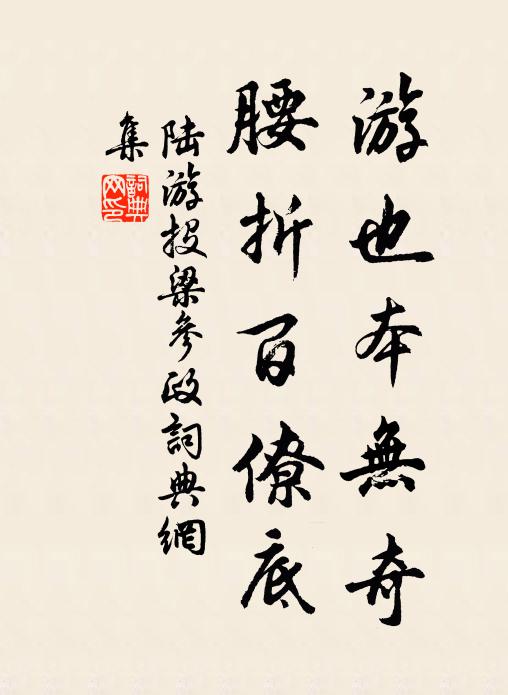 游也本無奇
腰折百僚底
陸游投梁參政詞典網
集
詞典
网印